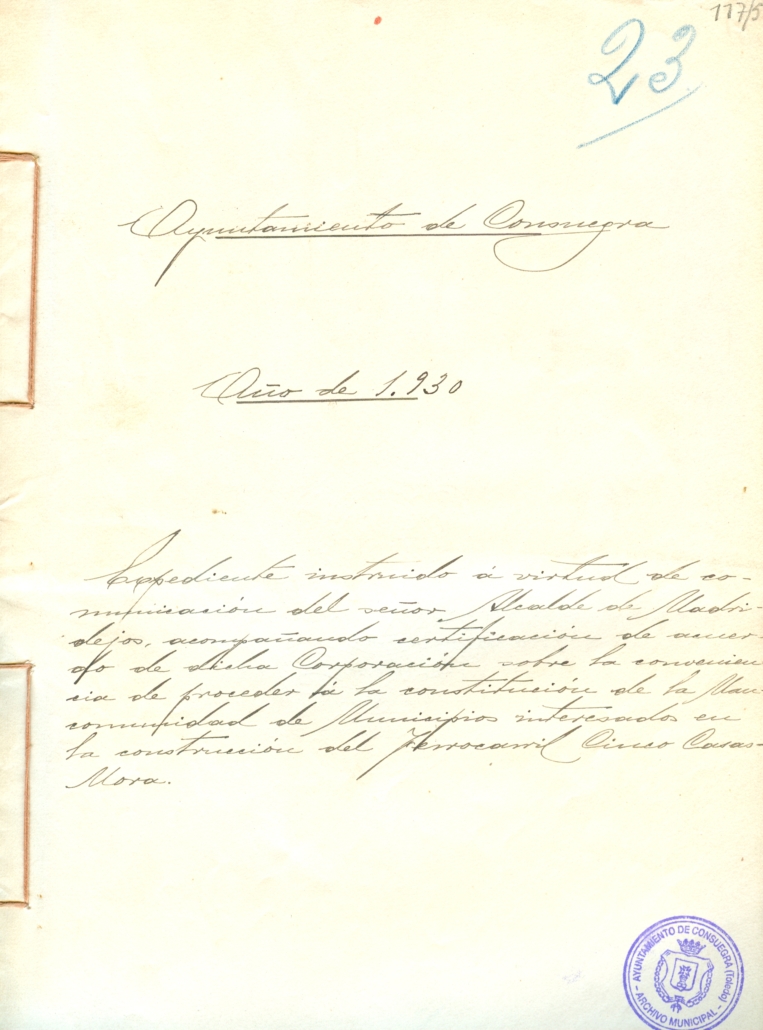 117/5
23
Ayuntamiento de Consuegra
Año de 1.930
Expediente instruido á virtud de co-
municación del señor Alcalde de Madri-
dejos, acompañando certificación de acuer-
do de dicha Corporación sobre la convenien
cia de proceder á la constitución de la Man
comunidad de Municipios interesados en
la construcción del Ferrocarril Cinco Casas-
Mora.
AYUNTAMIENTO DE CONSUEGRA (Toledo)
- ARCHIVO MUNICIPAL -